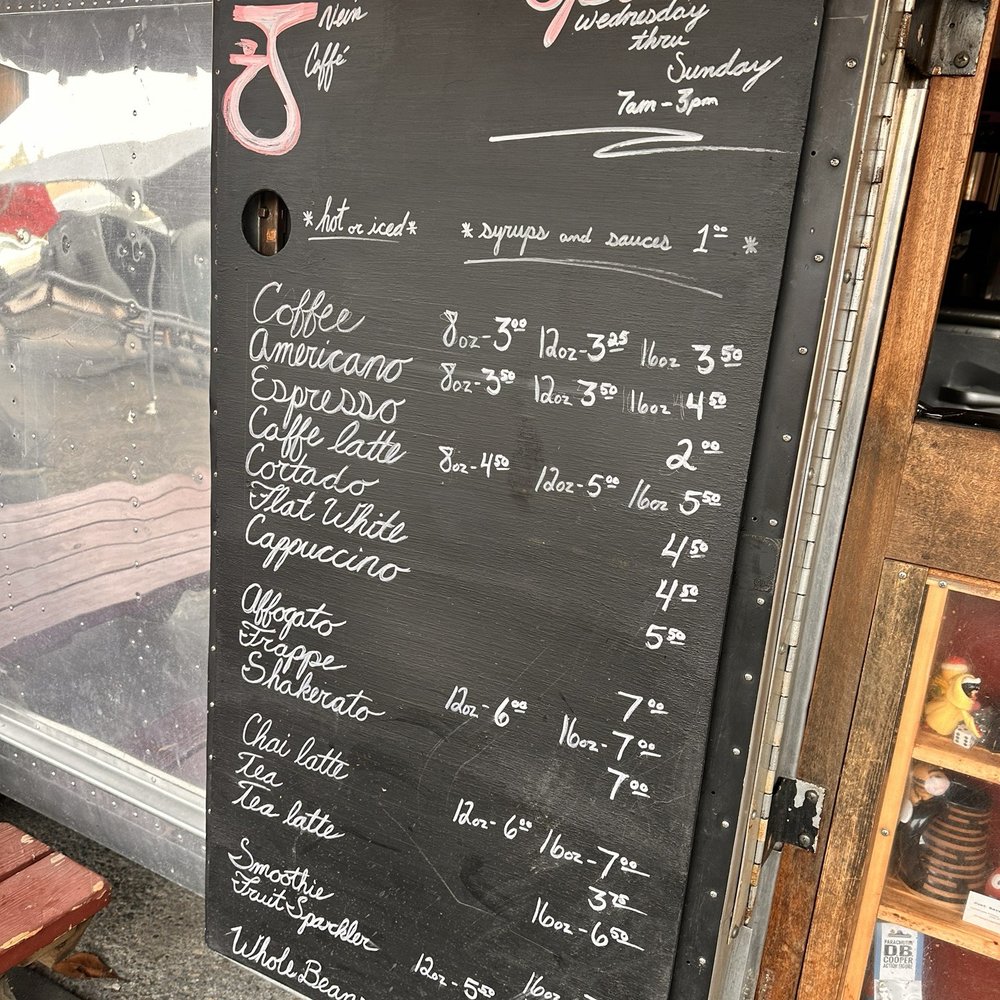 Vein
Caffé
Wednesday
thru
Sunday
7am - 3pm
*hot or iced*
*syrups and sauces 1⁰⁰ *
Coffee 8oz-3⁰⁰ 12oz-3²⁵ 16oz 3⁵⁰
Americano 8oz-3⁵⁰ 12oz 3⁵⁰ 16oz 4⁵⁰
Espresso 2⁰⁰
Caffe latte 8oz-4⁵⁰ 12oz-5⁰⁰ 16oz 5⁵⁰
Cortado 4⁵⁰
Flat White 4⁵⁰
Cappuccino 5⁵⁰
Affogato 7⁰⁰
Frappe 12oz-6⁰⁰ 16oz-7⁰⁰
Shakerato 7⁰⁰
Chai latte 12oz-6⁰⁰ 16oz-7⁰⁰
Tea
Tea latte 16oz-6⁵⁰
Smoothie 12oz-5⁵⁰ 16oz
Fruit Sparkler
Whole Bean
PARACHUTING
D.B.
COOPER
ACTION FIGURE